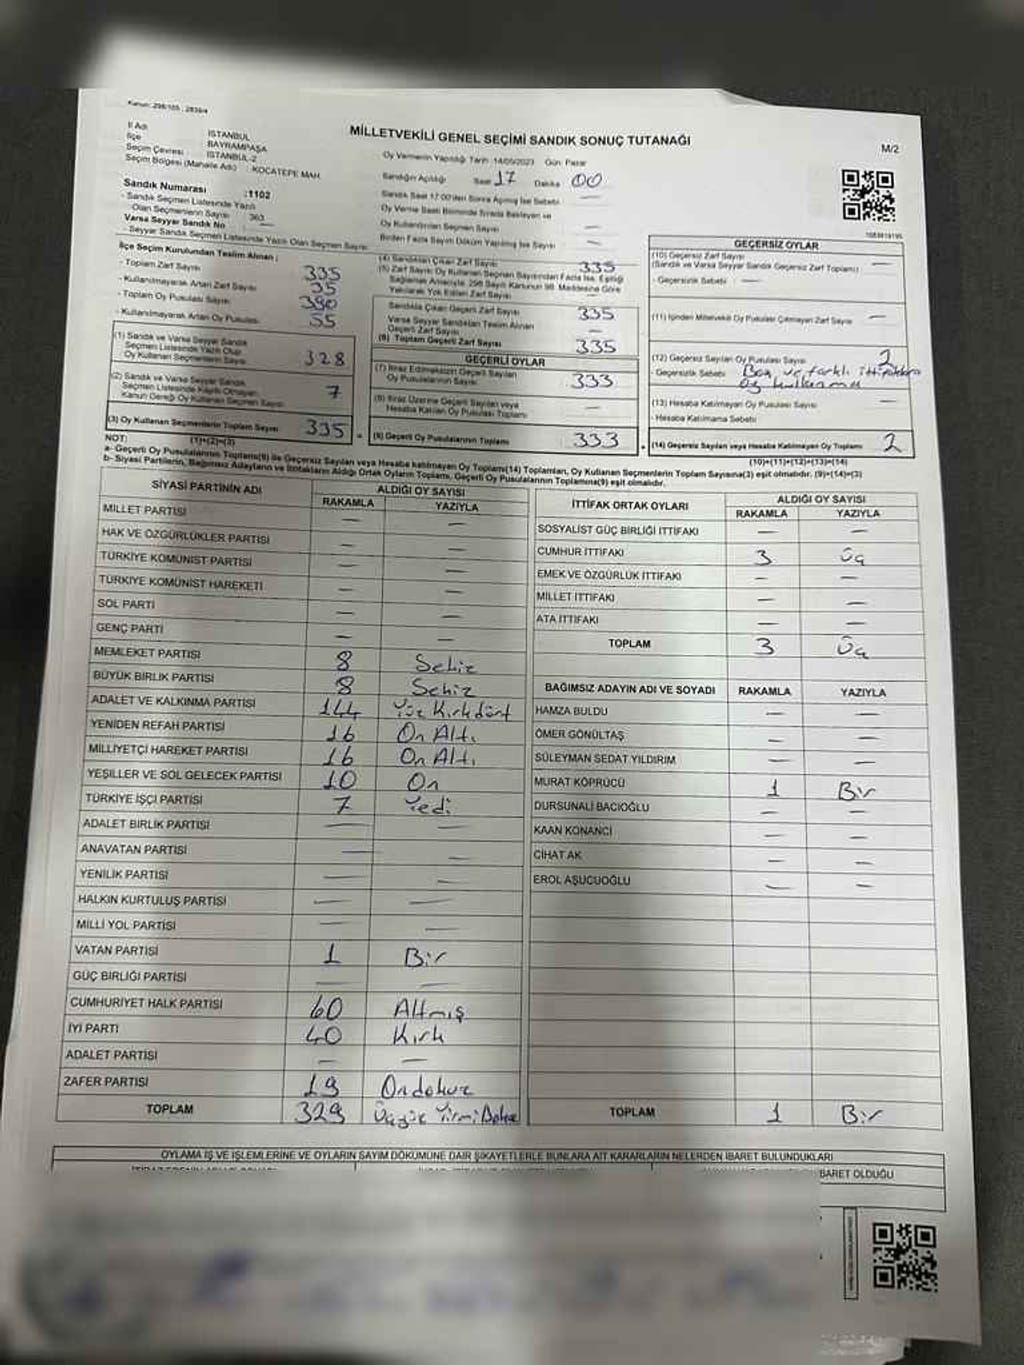 Kanun: 298/105 , 2839/4
MİLLETVEKİLİ GENEL SEÇİMİ SANDIK SONUÇ TUTANAĞI
M/2
İl Adı : İSTANBUL
İlçe : BAYRAMPAŞA
Seçim Çevresi : İSTANBUL-2
Seçim Bölgesi (Mahalle Adı) : KOCATEPE MAH.
Sandık Numarası :1102
- Sandık Seçmen Listesinde Yazılı
Olan Seçmenlerin Sayısı : 363
Varsa Seyyar Sandık No
- Seyyar Sandık Seçmen Listesinde Yazılı Olan Seçmen Sayısı
Oy Vermenin Yapıldığı Tarih: 14/05/2023 Gün: Pazar
Sandığın Açıldığı Saat 17 Dakika 00
Sandık Saat 17.00'den Sonra Açılmış İse Sebebi: —
Oy Verme Saati Bitiminde Sırada Bekleyen ve
Oy Kullandırılan Seçmen Sayısı —
Birden Fazla Sayım Döküm Yapılmış İse Sayısı —
İlçe Seçim Kurulundan Teslim Alınan ;
- Toplam Zarf Sayısı 335
- Kullanılmayarak Artan Zarf Sayısı 35
- Toplam Oy Pusulası Sayısı 380
- Kullanılmayarak Artan Oy Pusulası 55
(1) Sandık ve Varsa Seyyar Sandık
Seçmen Listesinde Yazılı Olup
Oy Kullanan Seçmenlerin Sayısı 328
(2) Sandık ve Varsa Seyyar Sandık
Seçmen Listesinde Kayıtlı Olmayan
Kanun Gereği Oy Kullanan Seçmen Sayısı 7
(3) Oy Kullanan Seçmenlerin Toplam Sayısı 335
(1)+(2)=(3)
(4) Sandıktan Çıkan Zarf Sayısı 335
(5) Zarf Sayısı Oy Kullanan Seçmen Sayısından Fazla İse, Eşitliği
Sağlamak Amacıyla 298 Sayılı Kanunun 98. Maddesine Göre
Yakılarak Yok Edilen Zarf Sayısı —
Sandıkta Çıkan Geçerli Zarf Sayısı 335
Varsa Seyyar Sandıktan Teslim Alınan
Geçerli Zarf Sayısı —
(6) Toplam Geçerli Zarf Sayısı 335
GEÇERLİ OYLAR
(7) İtiraz Edilmeksizin Geçerli Sayılan
Oy Pusulalarının Sayısı 333
(8) İtiraz Üzerine Geçerli Sayılan veya
Hesaba Katılan Oy Pusulası Toplamı —
(9) Geçerli Oy Pusulalarının Toplamı 333
GEÇERSİZ OYLAR
(10) Geçersiz Zarf Sayısı
(Sandık ve Varsa Seyyar Sandık Geçersiz Zarf Toplamı) —
- Geçersizlik Sebebi : —
(11) İçinden Milletvekili Oy Pusulası Çıkmayan Zarf Sayısı —
(12) Geçersiz Sayılan Oy Pusulası Sayısı 2
- Geçersizlik Sebebi Boş ve farklı ittifaklara
oy kullanma
(13) Hesaba Katılmayan Oy Pusulası Sayısı —
- Hesaba Katılmama Sebebi
(14) Geçersiz Sayılan veya Hesaba Katılmayan Oy Toplamı 2
(10)+(11)+(12)+(13)=(14)
NOT:
a- Geçerli Oy Pusulalarının Toplamı(9) ile Geçersiz Sayılan veya Hesaba katılmayan Oy Toplamı(14) Toplamları, Oy Kullanan Seçmenlerin Toplam Sayısına(3) eşit olmalıdır. (9)+(14)=(3)
b- Siyasi Partilerin, Bağımsız Adayların ve İttifakların Aldığı Ortak Oyların Toplamı, Geçerli Oy Pusulalarının Toplamına(9) eşit olmalıdır.
SİYASİ PARTİNİN ADI
ALDIĞI OY SAYISI
RAKAMLA YAZIYLA
MİLLET PARTİSİ — —
HAK VE ÖZGÜRLÜKLER PARTİSİ — —
TÜRKİYE KOMÜNİST PARTİSİ — —
TÜRKİYE KOMÜNİST HAREKETİ — —
SOL PARTİ — —
GENÇ PARTİ — —
MEMLEKET PARTİSİ 8 Sekiz
BÜYÜK BİRLİK PARTİSİ 8 Sekiz
ADALET VE KALKINMA PARTİSİ 144 Yüz Kırkdört
YENİDEN REFAH PARTİSİ 16 On Altı
MİLLİYETÇİ HAREKET PARTİSİ 16 On Altı
YEŞİLLER VE SOL GELECEK PARTİSİ 10 On
TÜRKİYE İŞÇİ PARTİSİ 7 Yedi
ADALET BİRLİK PARTİSİ — —
ANAVATAN PARTİSİ — —
YENİLİK PARTİSİ — —
HALKIN KURTULUŞ PARTİSİ — —
MİLLİ YOL PARTİSİ — —
VATAN PARTİSİ 1 Bir
GÜÇ BİRLİĞİ PARTİSİ — —
CUMHURİYET HALK PARTİSİ 60 Altmış
İYİ PARTİ 40 Kırk
ADALET PARTİSİ — —
ZAFER PARTİSİ 19 Ondokuz
TOPLAM 329 Üçyüz Yirmi Dokuz
İTTİFAK ORTAK OYLARI
ALDIĞI OY SAYISI
RAKAMLA YAZIYLA
SOSYALİST GÜÇ BİRLİĞİ İTTİFAKI — —
CUMHUR İTTİFAKI 3 Üç
EMEK VE ÖZGÜRLÜK İTTİFAKI — —
MİLLET İTTİFAKI — —
ATA İTTİFAKI — —
TOPLAM 3 Üç
BAĞIMSIZ ADAYIN ADI VE SOYADI RAKAMLA YAZIYLA
HAMZA BULDU — —
ÖMER GÖNÜLTAŞ — —
SÜLEYMAN SEDAT YILDIRIM — —
MURAT KÖPRÜCÜ 1 Bir
DURSUNALİ BACIOĞLU — —
KAAN KONANCİ — —
CİHAT AK — —
EROL AŞUCUOĞLU — —
TOPLAM 1 Bir
OYLAMA İŞ VE İŞLEMLERİNE VE OYLARIN SAYIM DÖKÜMÜNE DAİR ŞİKAYETLERLE BUNLARA AİT KARARLARIN NELERDEN İBARET BULUNDUKLARI
İBARET OLDUĞU